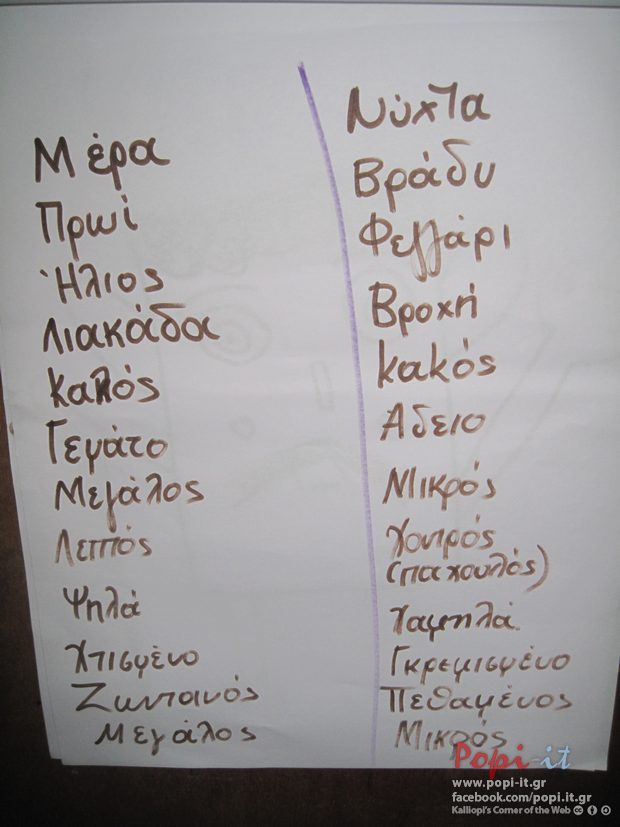 Μέρα
Πρωί
Ήλιος
Λιακάδα
Καλός
Γεμάτο
Μεγάλος
Λεπτός
Ψηλά
Χτισμένο
Ζωντανός
Μεγάλος
Νύχτα
Βράδυ
Φεγγάρι
Βροχή
Κακός
Άδειο
Μικρός
Χοντρός
(παχουλός)
Χαμηλά.
Γκρεμισμένο
Πεθαμένος
Μικρός
Popi-it
www.popi-it.gr
facebook.com/popi.it.gr
Kalliopi's Corner of the Web